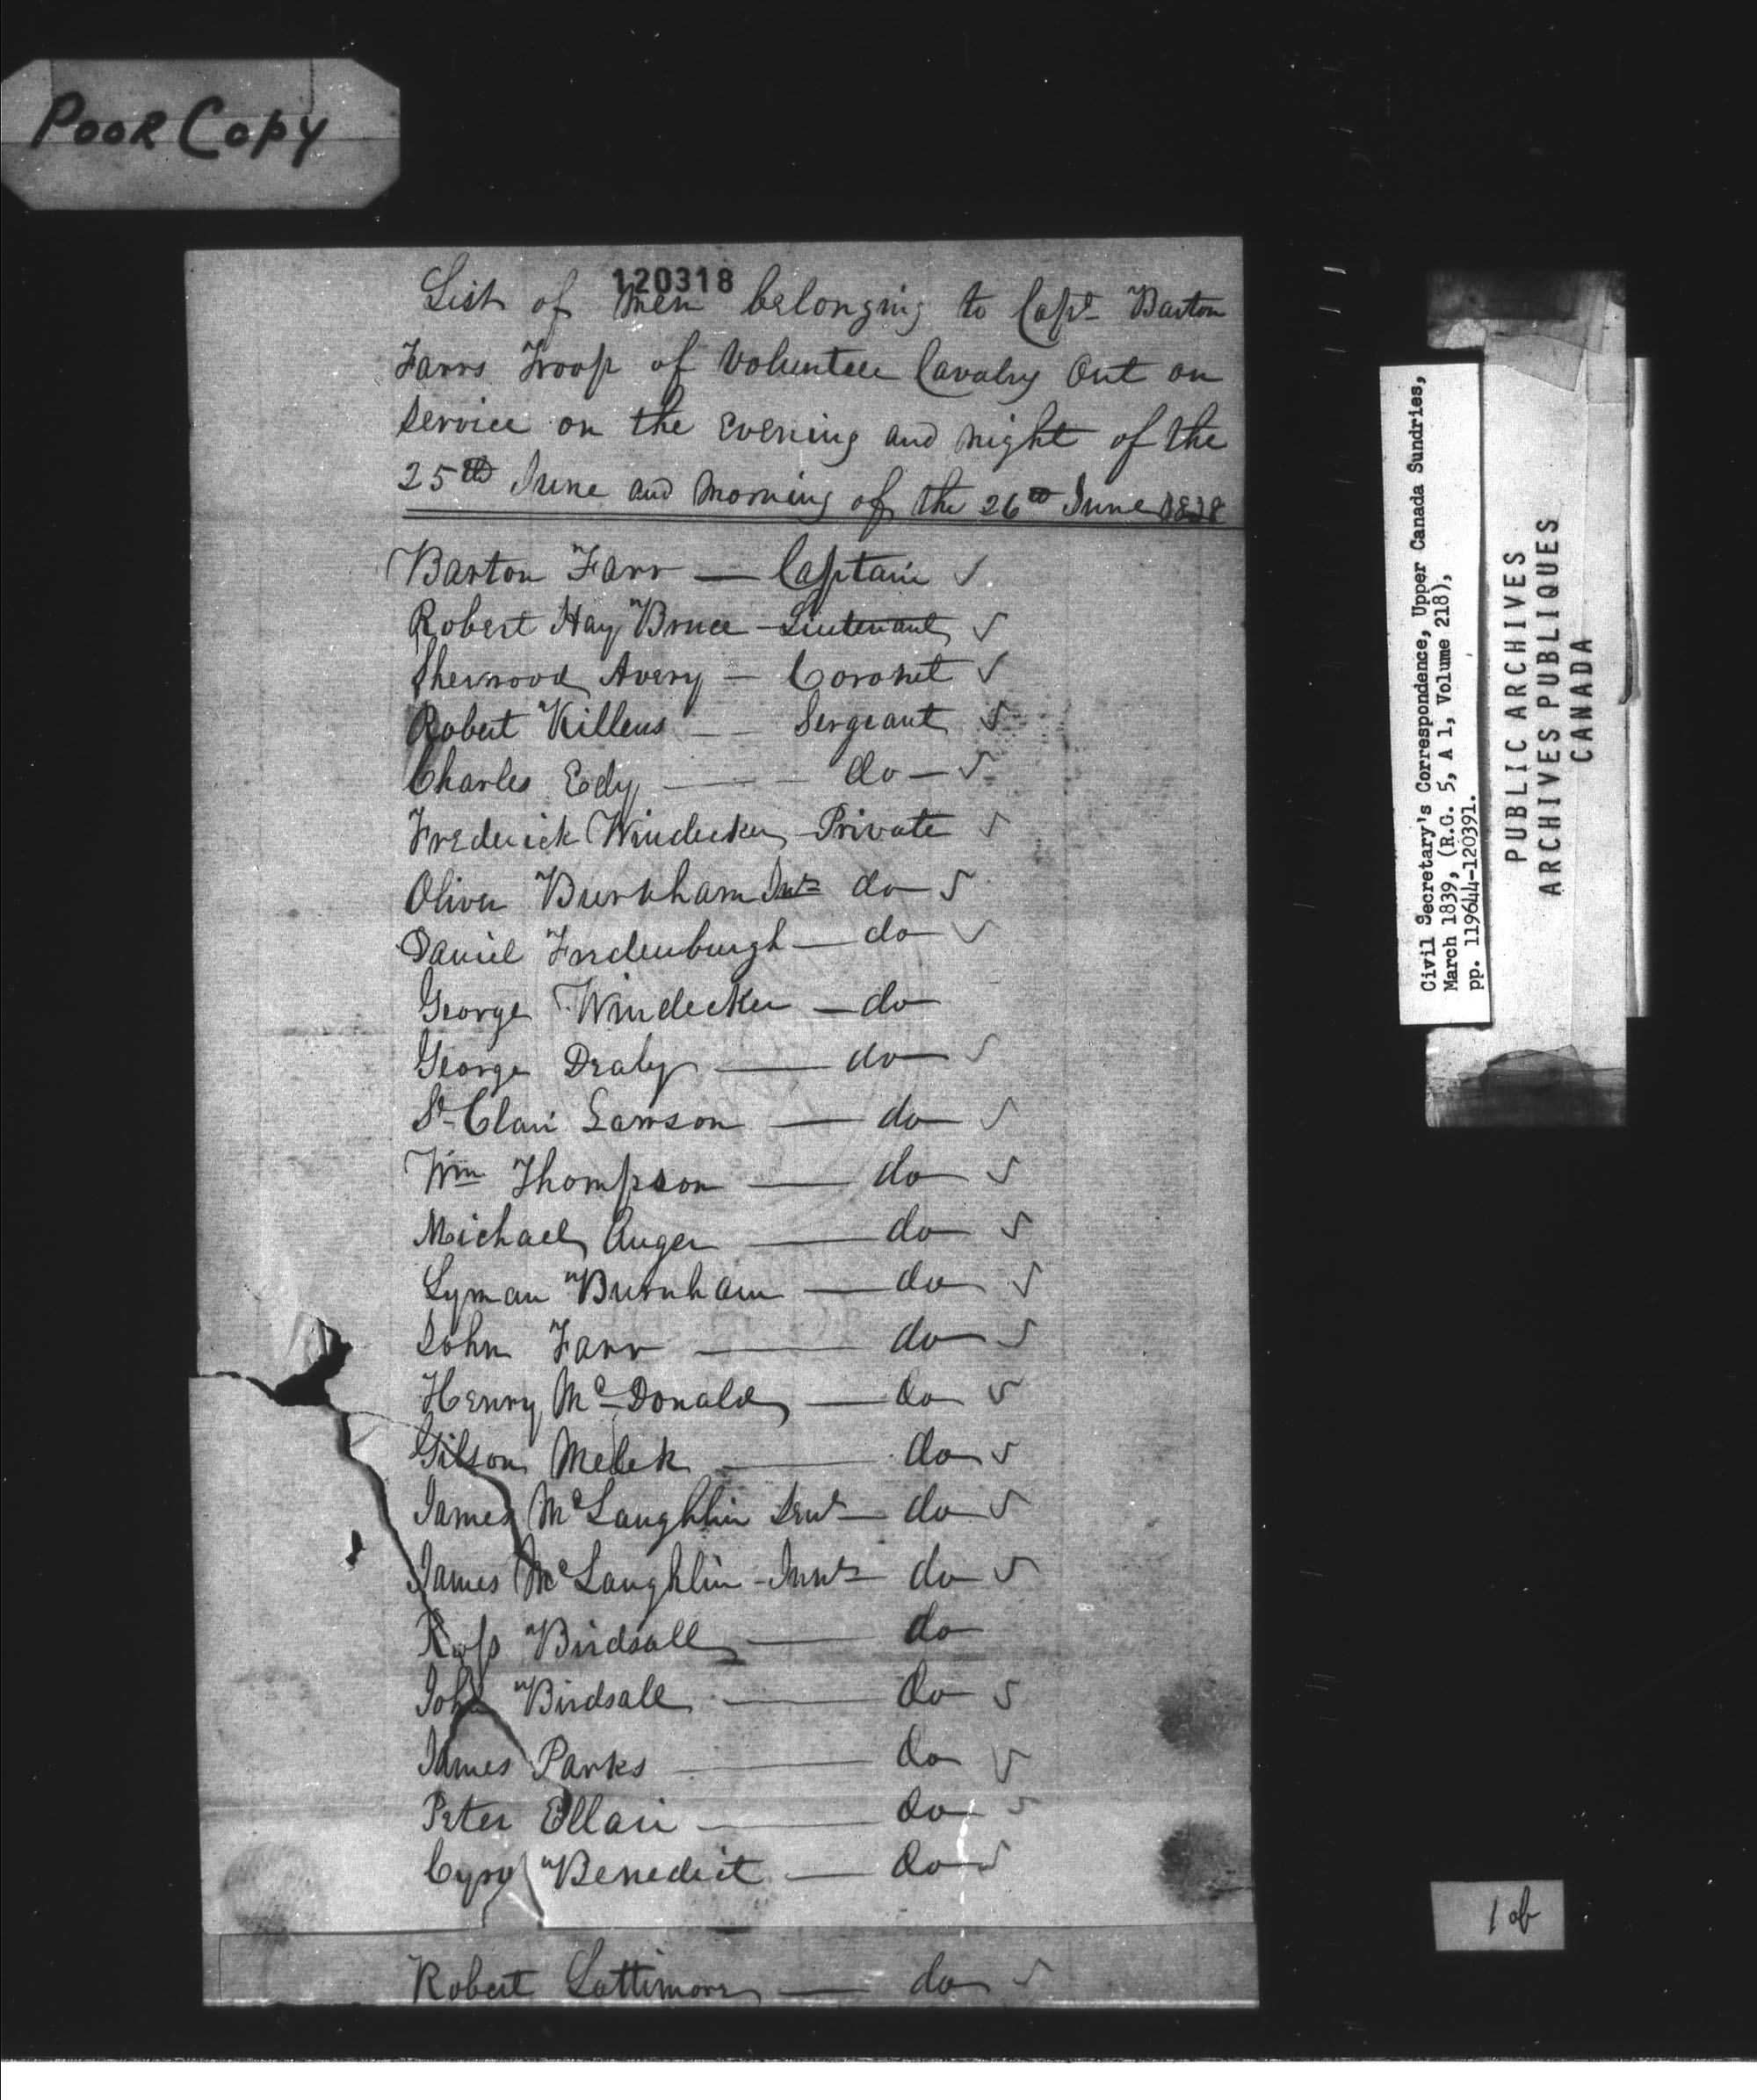 Poor Copy
120318
List of Men belonging to Capt Barton
Farrs Troop of Volunteer Cavalry Out on
Service on the Evening and night of the
25th June and Morning of the 26th June 1838
Barton Farr — Captain ✓
Robert Hay Bruce – Lieutenant ✓
Sherwood Avery – Coronet ✓
Robert Killens – – Sergeant ✓
Charles Edy — – – do – ✓
Frederick Windecker – Private ✓
Oliver Burnham Junr do ✓
Daniel Fredenburgh — do ✓
George Windecker – do
George Draly — do ✓
St Clair Lawson — do ✓
Wm Thompson — do ✓
Michael Auger — do ✓
Lyman Burnham — do ✓
John Farr — do ✓
Henry McDonald — do ✓
Gilson — do ✓
James McLaughlin Senr — do ✓
James McLaughlin – Junr do ✓
Ross Birdsall — do
John Birdsall — do ✓
James Parks — do ✓
Peter Ellair — do ✓
Cyrus Benedict — do ✓
Robert Lattimore — do ✓
Civil Secretary's Correspondence, Upper Canada Sundries,
March 1839, (R.G. 5, A 1, Volume 218),
pp. 119644-120391.
PUBLIC ARCHIVES
ARCHIVES PUBLIQUES
CANADA